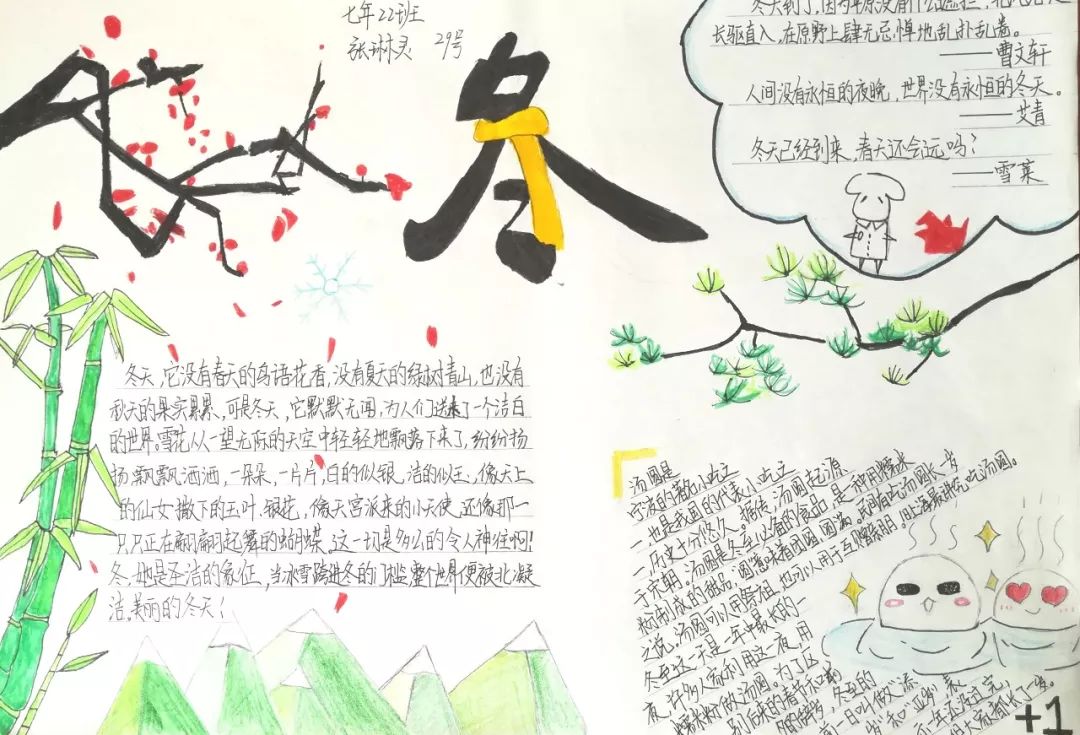 七年22班
张琳灵 29号
冬
冬天到了,因为平原没有什么遮拦,北风
长驱直入,在原野上肆无忌惮地乱扑乱卷。
——曹文轩
人间没有永恒的夜晚,世界没有永恒的冬天。
——艾青
冬天已经到来,春天还会远吗?
——雪莱
冬天,它没有春天的鸟语花香,没有夏天的绿树青山,也没有
秋天的果实累累,可是冬天,它默默无闻,为人们送来了一个洁白
的世界。雪花从一望无际的天空中轻轻地飘落下来了,纷纷扬
扬飘飘洒洒,一朵朵,一片片,白的似银,洁的似玉,像天上
的仙女撒下的玉叶、银花,像天宫派来的小天使,还像那一
只只正在翩翩起舞的蝴蝶,这一切是多么的令人神往啊!
冬,她是圣洁的象征,当冰雪踏进冬的门槛,整个世界便被北凝
洁,美丽的冬天!
汤圆是
宁波的著名小吃之
一,也是我国的代表小吃之
一,历史十分悠久。据传,汤圆起源
于宋朝。汤圆是冬至必备的食品,是一种用糯米
粉制成的甜品,圆意味着团圆圆满。民间有吃汤圆长一岁
之说。汤圆可以用祭祖,也可以用于互赠亲朋。旧上海最讲究吃汤圆。
冬至这天是一年中最长的一
夜,许多人家利用这夜,用
糯米粉做汤圆。为了区
别后来的春节
冬至的
叫做
+1